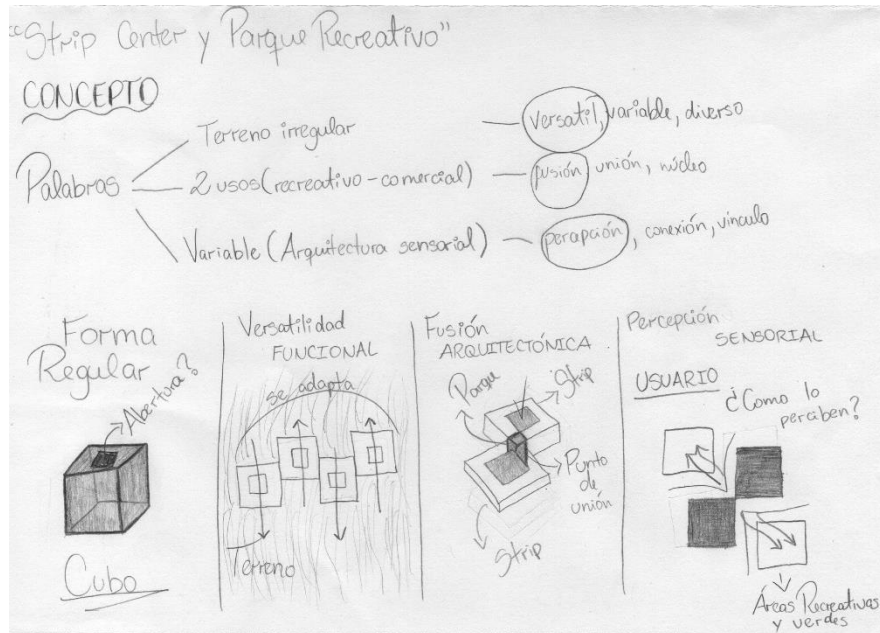 "Strip Center y Parque Recreativo"
CONCEPTO
Palabras
Terreno irregular
versatil, variable, diverso
2 usos (recreativo-comercial)
fusión, unión, núcleo
Variable (Arquitectura sensorial)
percepción, conexión, vinculo
Forma
Regular
Abertura?
Cubo
Versatilidad
FUNCIONAL
se adapta
Terreno
Fusión
ARQUITECTÓNICA
Parque
Strip
Punto
de
unión
Strip
Percepción
SENSORIAL
USUARIO
¿Como lo
perciben?
Áreas Recreativas
y verdes